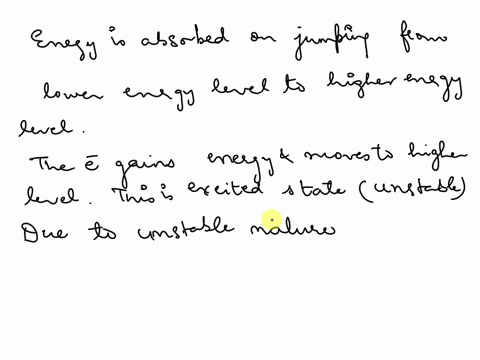 Enegy is absorbed on jumping from
lower energy level to higher energy
level.
The ē gains energy & moves to higher
level. This is excited state (unstable)
Due to unstable nature